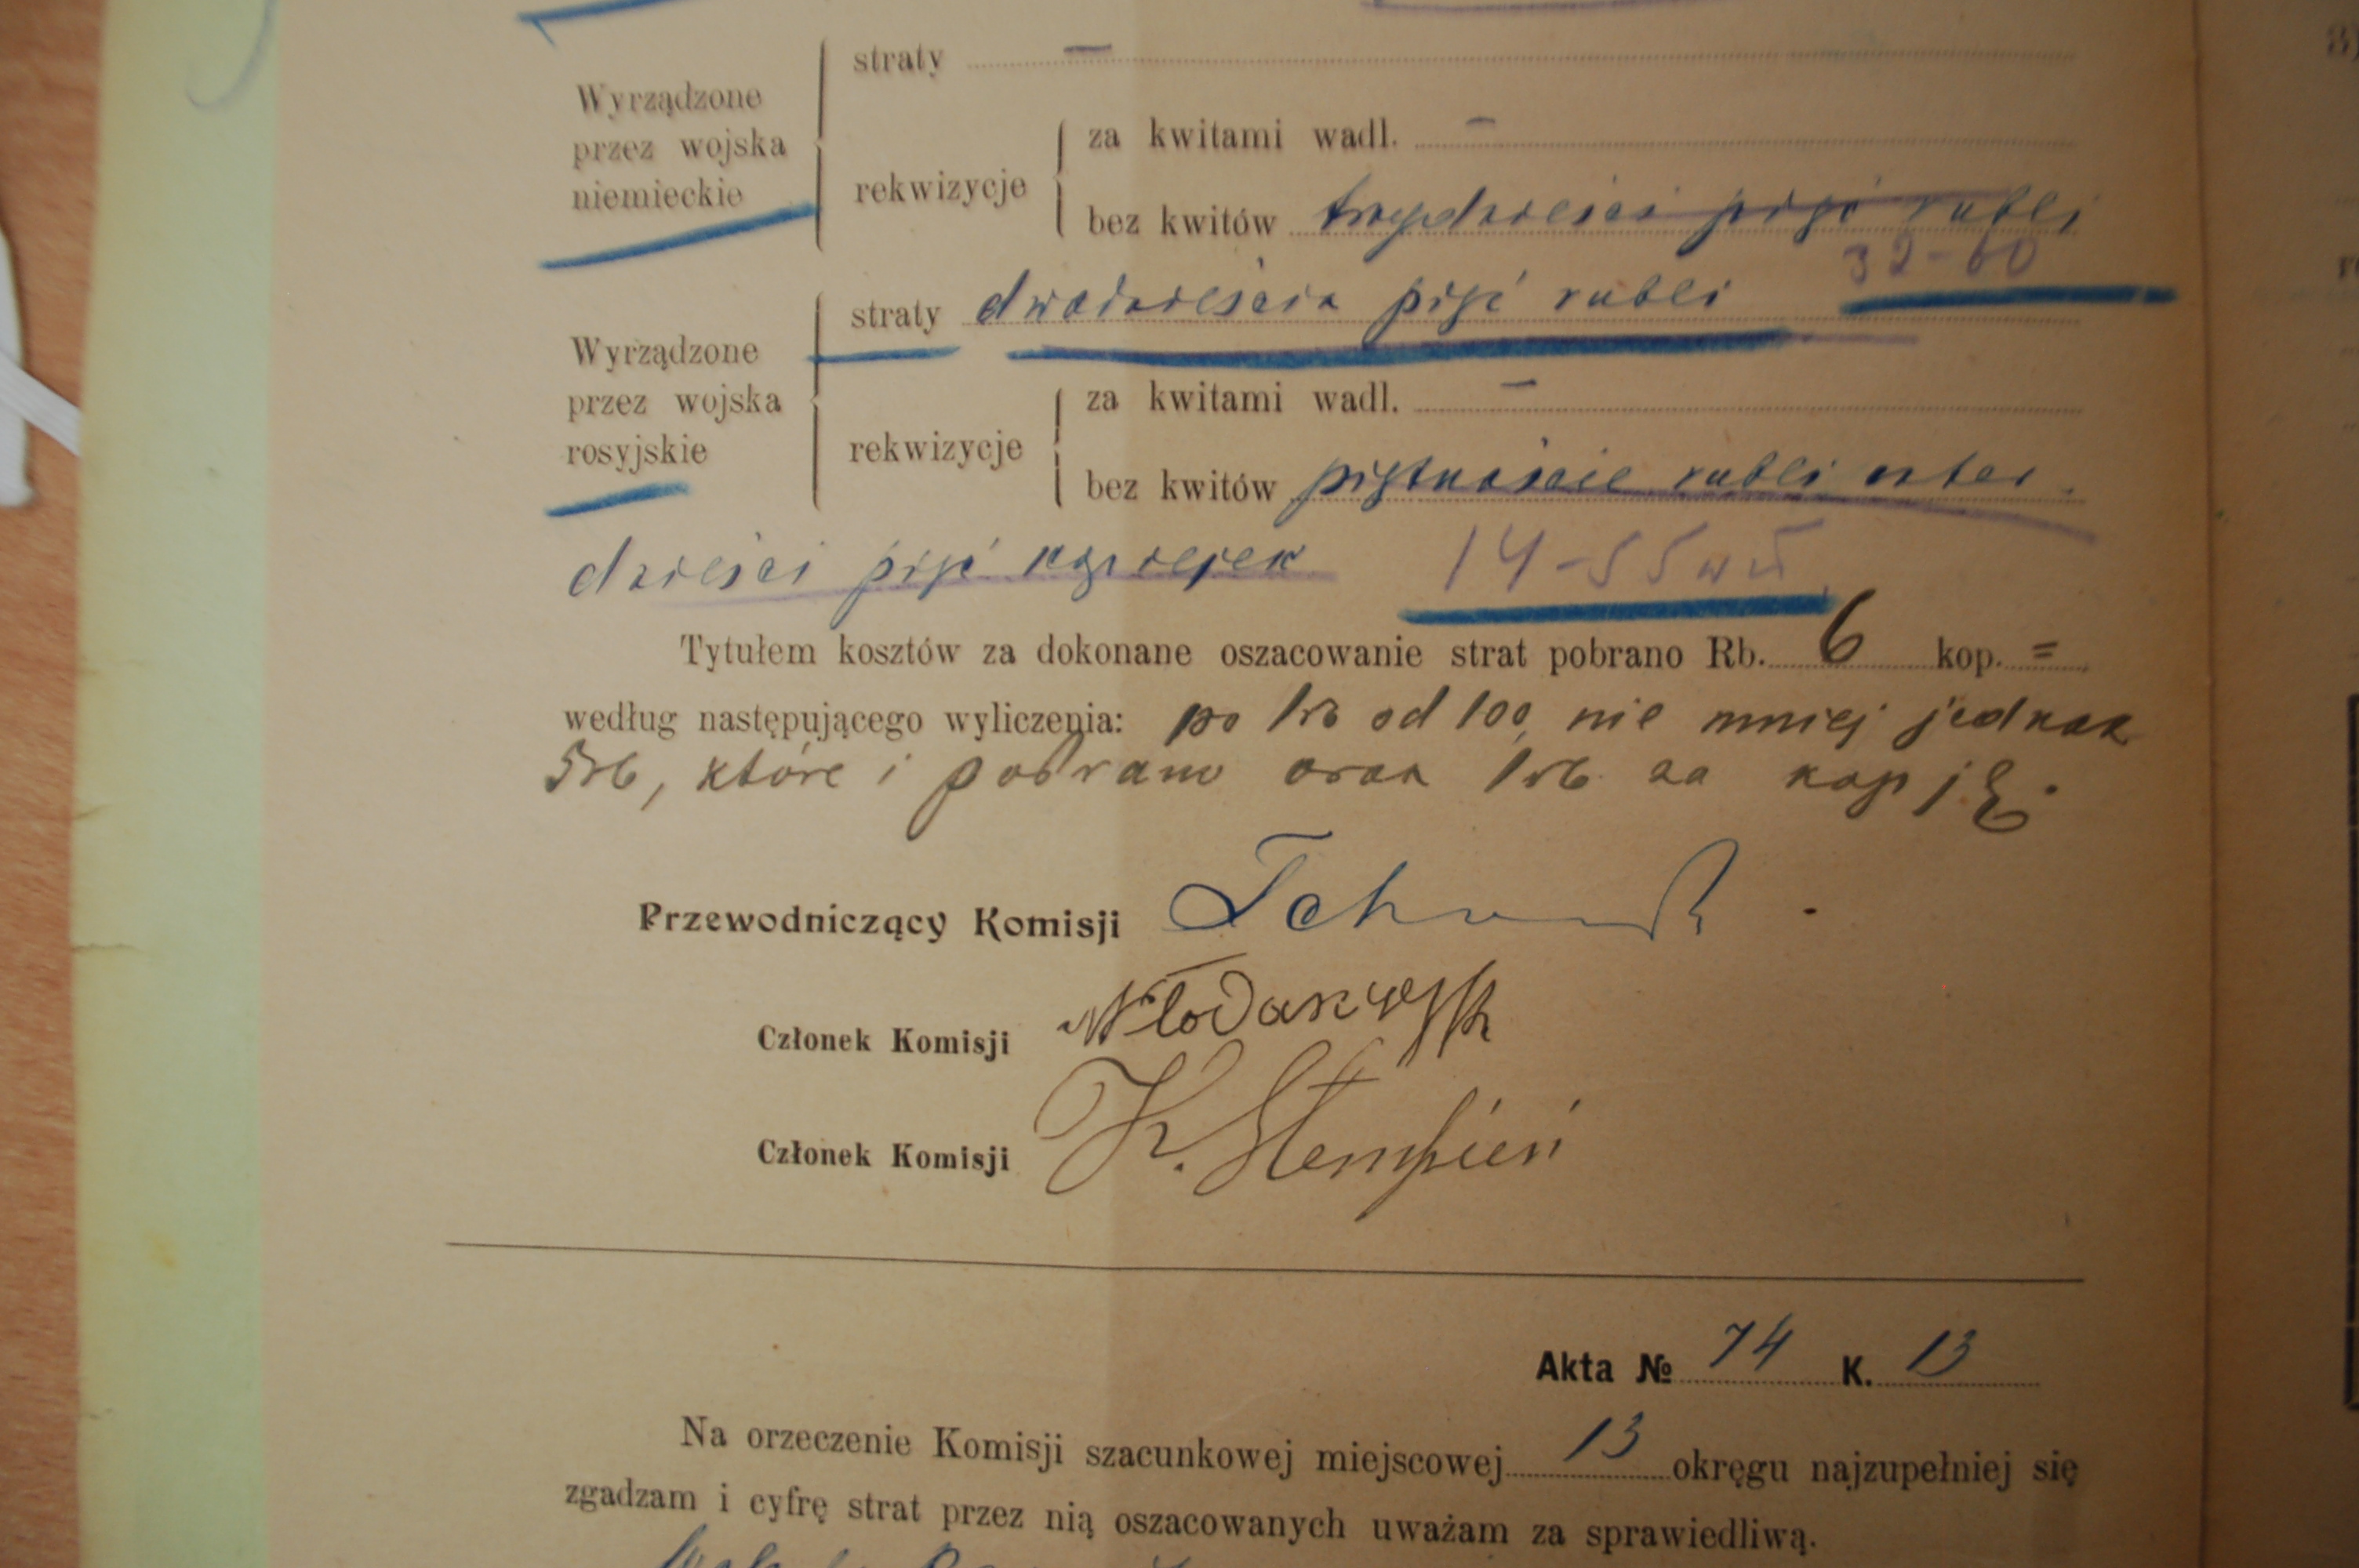 straty —
Wyrządzone
przez wojska
niemieckie
rekwizycje
za kwitami wadl. —
bez kwitów trzydzieści pięć rubli
32-60
straty dwadzieścia pięć rubli
Wyrządzone
przez wojska
rosyjskie
rekwizycje
za kwitami wadl. —
bez kwitów piętnaście rubli czter
dzieści pięć kopiejek 14-55
Tytułem kosztów za dokonane oszacowanie strat pobrano Rb. 6 kop. =
według następującego wyliczenia: po 1 rb od 100, nie mniej jednak
5 rb, które i pobrano oraz 1 rb. za kopję.
Przewodniczący Komisji
Członek Komisji
Członek Komisji K. Stempień
Akta № 74 K. 13
Na orzeczenie Komisji szacunkowej miejscowej 13 okręgu najzupełniej się
zgadzam i cyfrę strat przez nią oszacowanych uważam za sprawiedliwą.